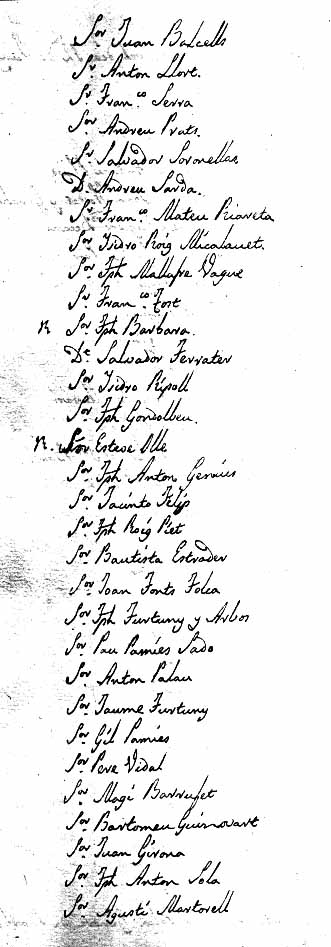 Sor Juan Balcells
Sr Anton Llort.
Sr Franco Serra
Sor Andreu Prats.
Sr Salvador Soronellas
Dr Andreu Sarda.
Sr Franco Mateu Riaveta
Sor Isidro Roig Micalauet.
Sor Jph Mallafre Vague
Sr Franco Fort
R Sor Jph Barbara.
Dr Salvador Ferrater
Sor Isidro Ripoll
Sor Jph Gondolbeu.
R. Sor Esteve Olle
Sor Jph Anton
Sor Jacinto Felip
Sor Jph Roig Piet
Sor Bautista Estrader
Sor Joan Fonts Folca
Sor Jph Furtuny y Arbos
Sor Pau Pamies Sado
Sor Anton Palau
Sor Jaume Furtuny
Sor Gil Pamies
Sor Pere Vidal
Sor Magi Barrufet
Sor Bartomeu Guinovart
Sor Juan Girona
Sor Jph Anton Sola
Sor Agustí Martorell